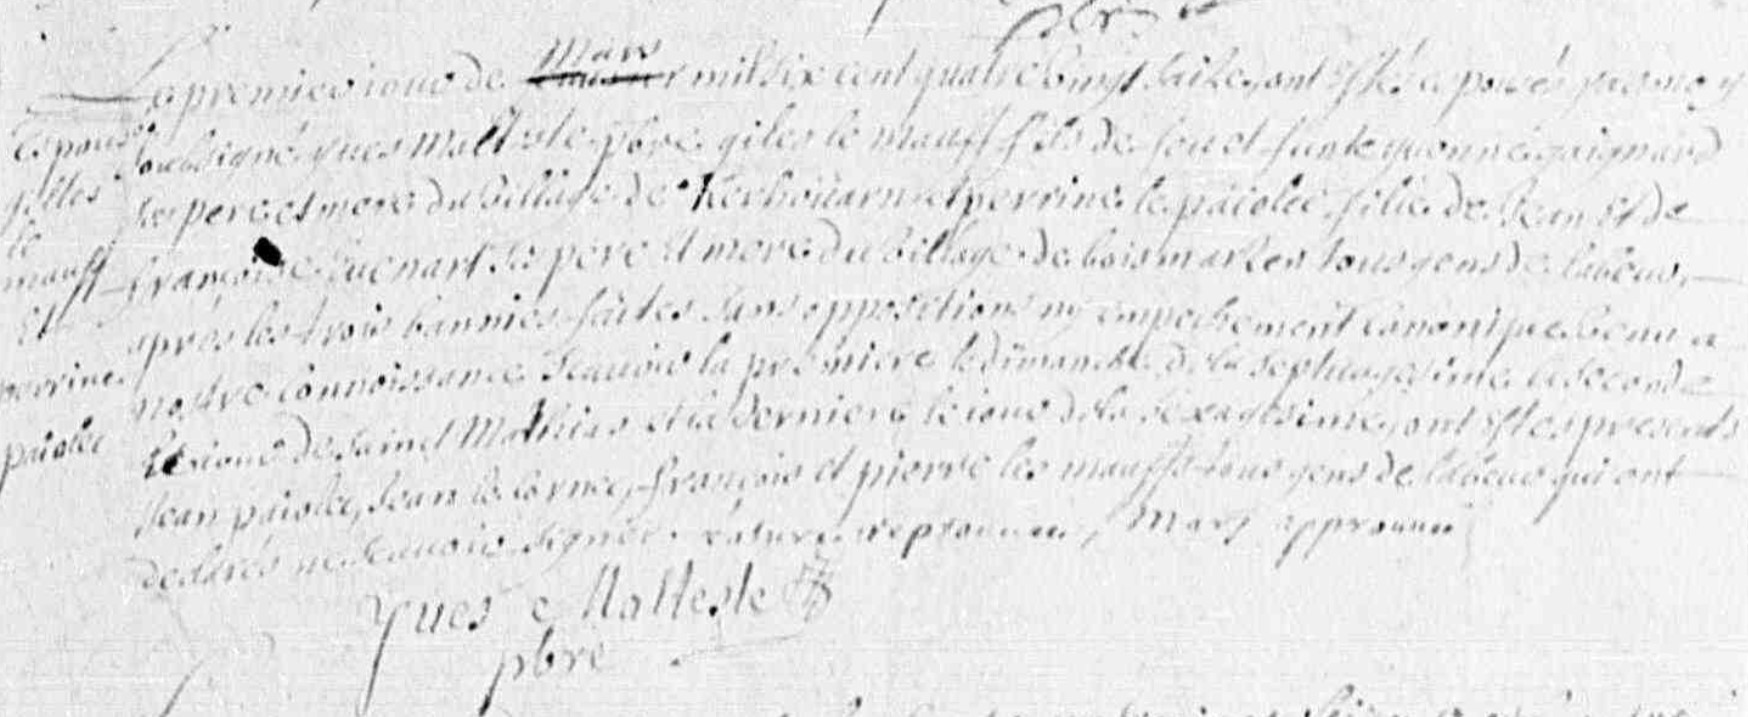 pbre
Le premier iour de mars mil six cent quatre vingt seize, ont esté espousés par moy
soubsigné yues Malteste pbre giles le mauff fils de feu et funte yuonne gaignard
ses pere et mere du village de Kerhoüarn et perrine le païolec fille de Jean et de
françoise ses pere et mere du village de boismarlen tous gens de labeur,
apres les trois bannies faites sans oppositions ny empeschement canonique venu a
nostre connoissance scauoir la premiere le dimanche de la septuagesime la seconde
le iour de sainct Mathias et la derniere le iour de la sexagesime, ont estes presents
Jean païolec, Jean le cornec, françois et pierre les mauffs tous gens de labeur qui ont
declarés ne scauoir signer. rature reprouuee, Mars approuué
Yues Malteste
pbre
Espous
gilles
le
mauff
Et
perrine
païolec